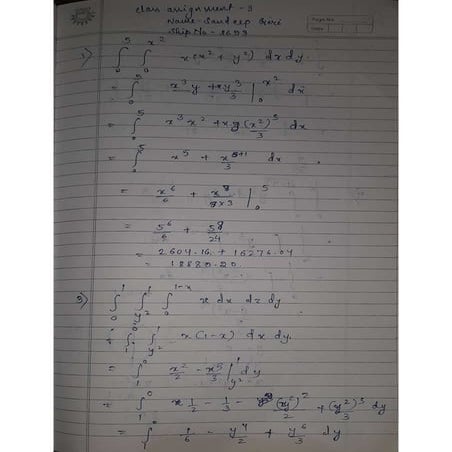 Class assignment - 3
Name - Sandeep
Ship No - 2693
1) ∫₀⁵ ∫₀^x² x(x² + y²) dx dy.
= ∫₀⁵ x³y + xy³/3 |₀^x² dx
= ∫₀⁵ x³x² + x(x²)³/3 dx
= ∫₀⁵ x⁵ + x⁶⁺¹/3 dx
= x⁶/6 + x⁸/8×3 |₀⁵
= 5⁶/6 + 5⁸/24
= 2604.16 + 16276.04
= 18880.20
5) ∫₀¹ ∫_y²¹ ∫₀^1-x x dx dz dy
∫ ∫_y²¹ x(1-x) dx dy.
= ∫₁⁰ x²/2 - x³/3 |_y²¹ dy
= ∫₁⁰ 1/2 - 1/3 - (y²)²/2 + (y²)³/3 dy
= ∫₁⁰ 1/6 - y⁴/2 + y⁶/3 dy